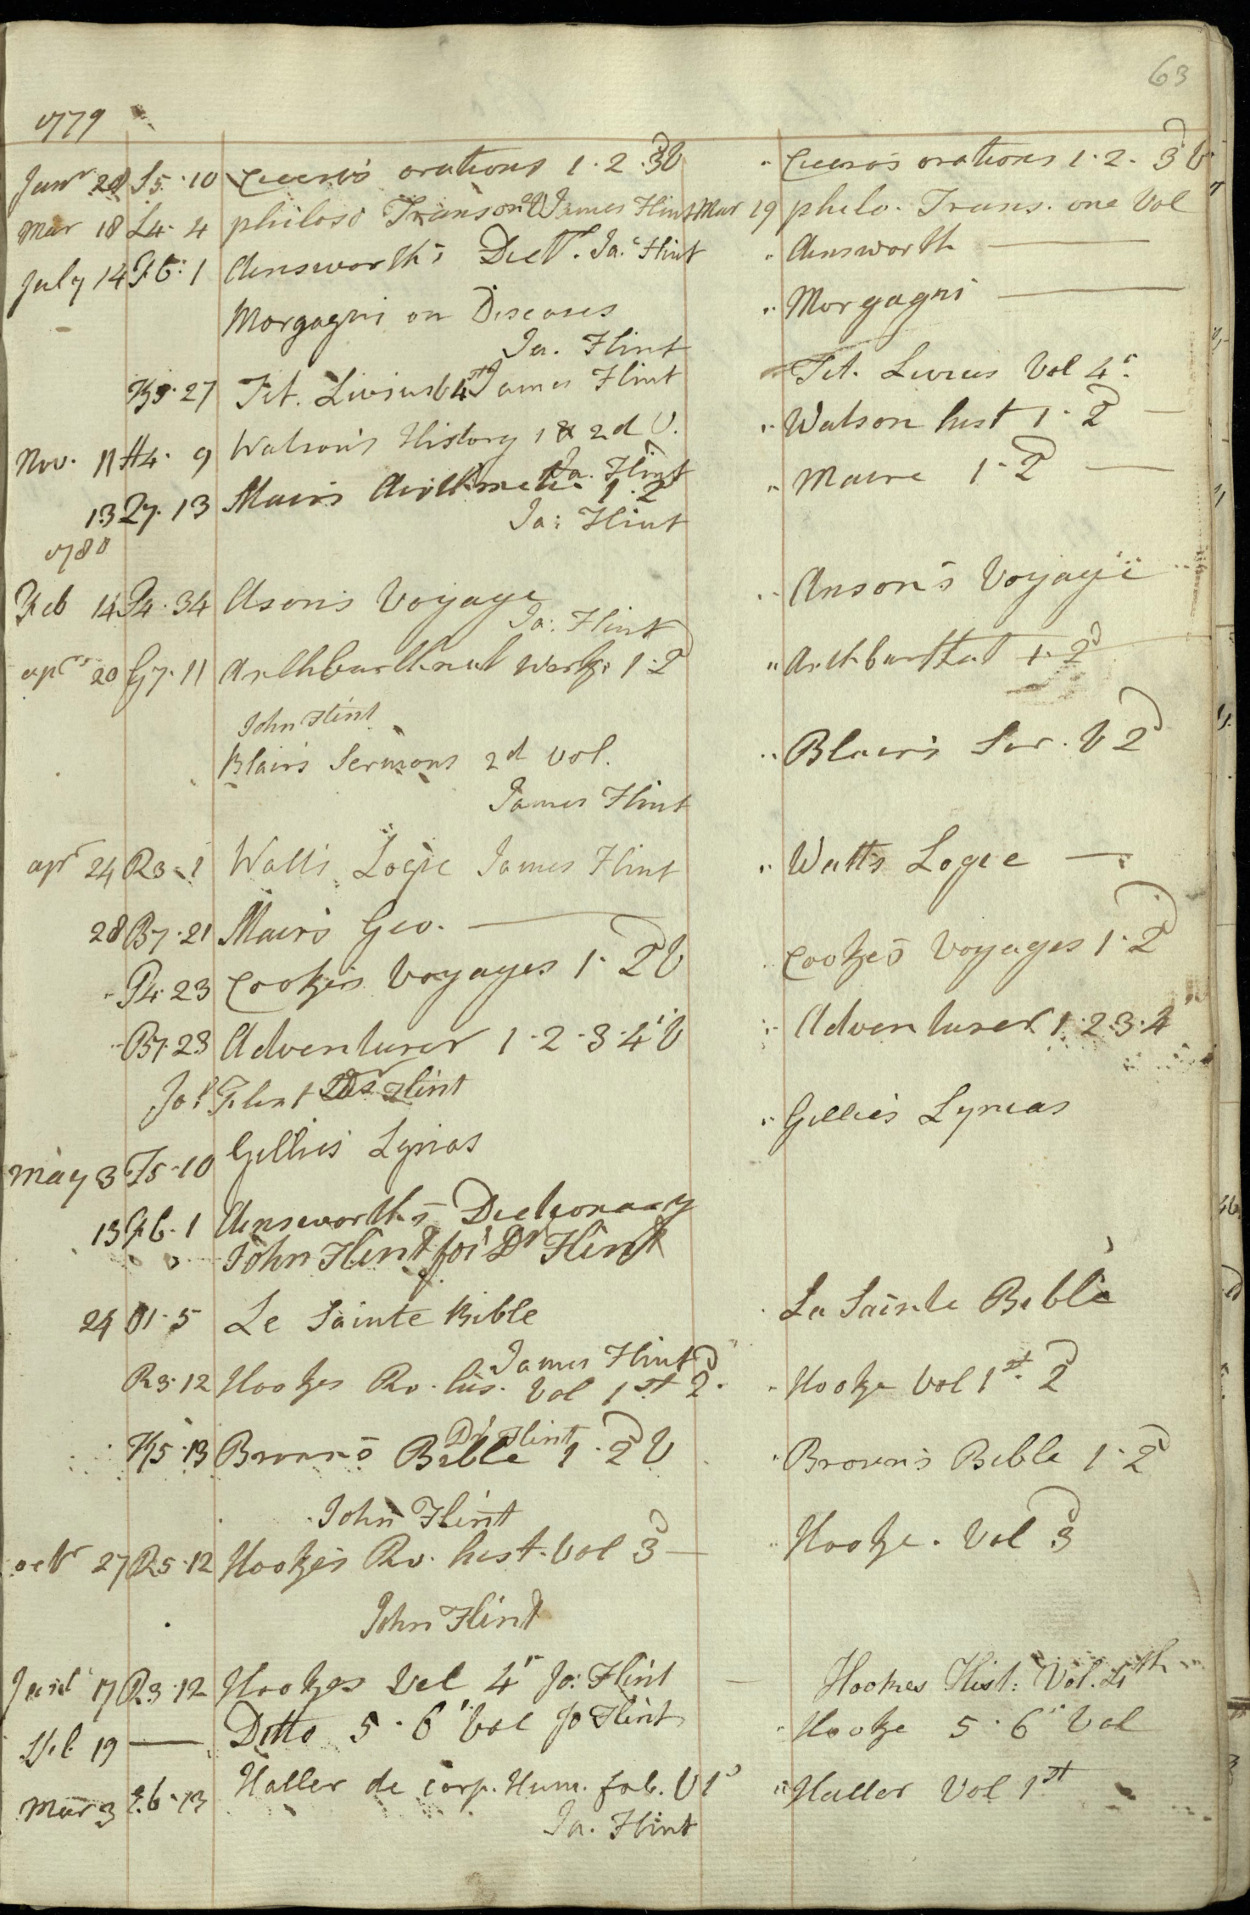 63
1779
Janr 28 S5·10 Cicero's orations 1·2·3d V Cicero's orations 1·2·3d V
Mar 18 L4·4 philoso Transon James Flint Mar 19 philo. Trans. one Vol
July 14 F6·1 Ainsworth's Dict. Ja. Flint Ainsworth
Morgagni on Diseases Morgagni
Ja. Flint
K5·27 Tit. Livius V 4 James Flint Tit. Livius Vol 4
Nov. 11 H4·9 Watson's History 1 & 2d V. Watson hist 1·2d
Ja. Flint
13 Z7·13 Mairs Arithmetic 1·2 Maire 1·2d
Ja: Flint
1780
Feb 14 P4·34 Asons Voyage Anson's Voyage
Ja: Flint
apr 20 G7·11 Arthburthnut Works 1·2d Arthburthnut 1·2d
John Flint
Blairs Sermons 2d vol. Blair's Ser. V 2d
James Flint
apr 24 R3·1 Watts Logic James Flint Watts Logic
28 B7·21 Mairs Geo.
P4·23 Cooke's Voyages 1·2d V Cooke's Voyages 1·2d
B7·23 Adventurer 1·2·3·4 V Adventurer 1·2·3·4
Jo: Flint Dr Flint
May 3 F5·10 Gillies Lysias Gillies Lysias
13 F6·1 Ainsworth's Dictionary
John Flint for Dr Flint
24 O1·5 Le Sainte Bible La Sainte Bible
James Flint
R3·12 Hookes Ro. his. Vol 1st 2d Hooke Vol 1st 2d
Dr Flint
K5·13 Brown's Bible 1·2d V Brown's Bible 1·2d
John Flint
octr 27 R5·12 Hooke's Ro. hist. Vol 3d Hooke. Vol 3d
John Flint
17 R3·12 Hookes Vol 4 Jo: Flint Hookes Hist: Vol. 4th
19 Ditto 5·6 Vol Jo Flint Hooke 5·6 Vol
Mar 3 E6·13 Haller de corp. Hum. fab. V 1st Haller Vol 1st
Ja. Flint